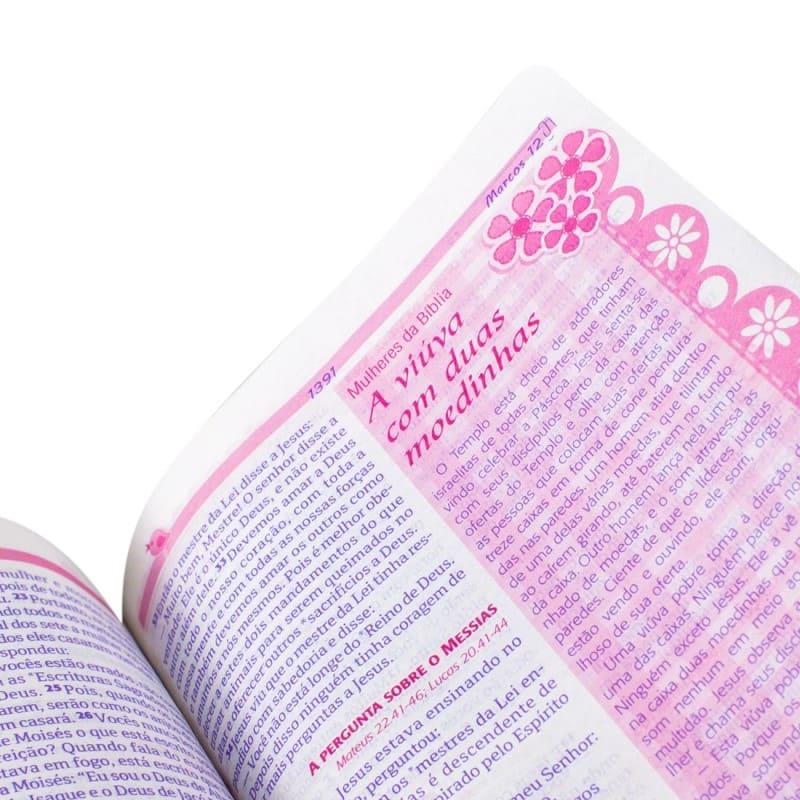 mulher e
pois de todos
23 Portanto
do todos os
l dos sete a m
dos eles casaram
spondeu:
vocês estão errados
m as *Escrituras Sagra
Deus. 25 Pois, quando
rarem, serão como os
m casará. 26 Vocês nun
e Moisés o que está esc
eição? Quando fala do
stava em fogo, está escrito
a Moisés: "Eu sou o Deus de
Isaque e o Deus de Jacó
1391
Marcos 12
mestre da Lei disse a Jesus:
— Muito bem, Mestre! O senhor disse a
Ele é o único Deus, e não existe
33 Devemos amar a Deus
nosso coração, com toda a
e com todas as nossas forças
devemos amar os outros como
amamos a nós mesmos. Pois é melhor obe-
decer a estes dois mandamentos do que
animais para serem queimados no
oferecer outros *sacrifícios a Deus.
34 Jesus viu que o mestre da Lei tinha res-
pondido com sabedoria e disse:
— Você não está longe do *Reino de Deus.
depois disso ninguém tinha coragem de
mais perguntas a Jesus.
A PERGUNTA SOBRE O MESSIAS
Mateus 22.41-46; Lucas 20.41-44
Jesus estava ensinando no
perguntou:
os *mestres da Lei en-
as é descendente de
pirado pelo Espírito
meu Senhor:
Mulheres da Bíblia
A viúva
com duas
moedinhas
O Templo está cheio de adoradores
israelitas de todas as partes, que tinham
vindo celebrar a Páscoa. Jesus senta-se
com seus discípulos perto da caixa das
ofertas do Templo e olha com atenção
as pessoas que colocam suas ofertas nas
treze caixas em forma de cone pendura-
das nas paredes. Um homem atira dentro
de uma delas várias moedas, que tilintam
ao caírem girando até baterem no fundo
da caixa. Outro homem lança nela um pu-
nhado de moedas, e o som atravessa as
paredes. Ciente de que os líderes judeus
estão vendo e ouvindo, ele sorri, orgu-
lhoso de sua oferta.
Uma viúva pobre toma a direção de
uma das caixas. Ninguém parece notá-
Ninguém exceto Jesus. Ele a vê
na caixa duas moedinhas que
som nenhum em meio ao
multidão. Jesus observa
lher e chama seus disc
— Esta viúva pobre
todos. Porque os